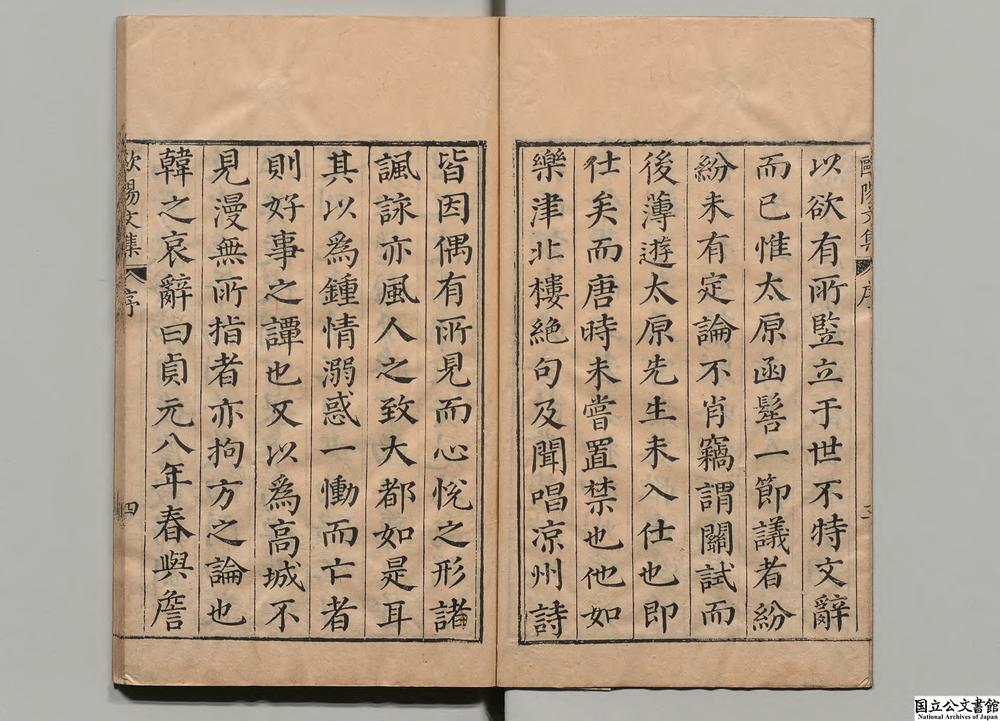 歐陽文集 序 三
以欲有所竪立于世不特文辭
而已惟太原函髻一節議者紛
紛未有定論不肖竊謂關試而
後薄遊太原先生未入仕也即
仕矣而唐時未嘗置禁也他如
樂津北樓絶句及聞唱凉州詩
皆因偶有所見而心悅之形諸
諷詠亦風人之致大都如是耳
其以爲鍾情溺惑一慟而亡者
則好事之譚也又以爲高城不
見漫無所指者亦拘方之論也
韓之哀辭曰貞元八年春與詹
歐陽文集 序 四
国立公文書館
National Archives of Japan